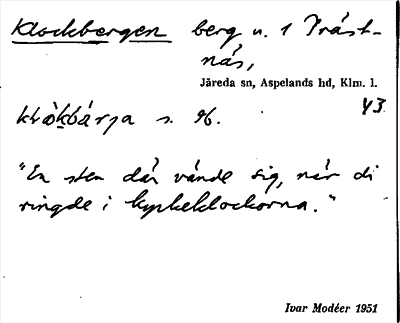 Klockbergen berg n. 1 Präst-
näs,
Järeda sn, Aspelands hd, Klm. l.
43
s. 96.
"En sten där vände sig, när di
ringde i kyrkeklockorna."
Ivar Modéer 1951